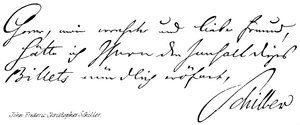 Gern, mein werther und lieber Freund,
hätte ich Ihnen den Innhalt dieses
Billets mündlich eröfnet,
Schiller
John Frederic Christopher Schiller.